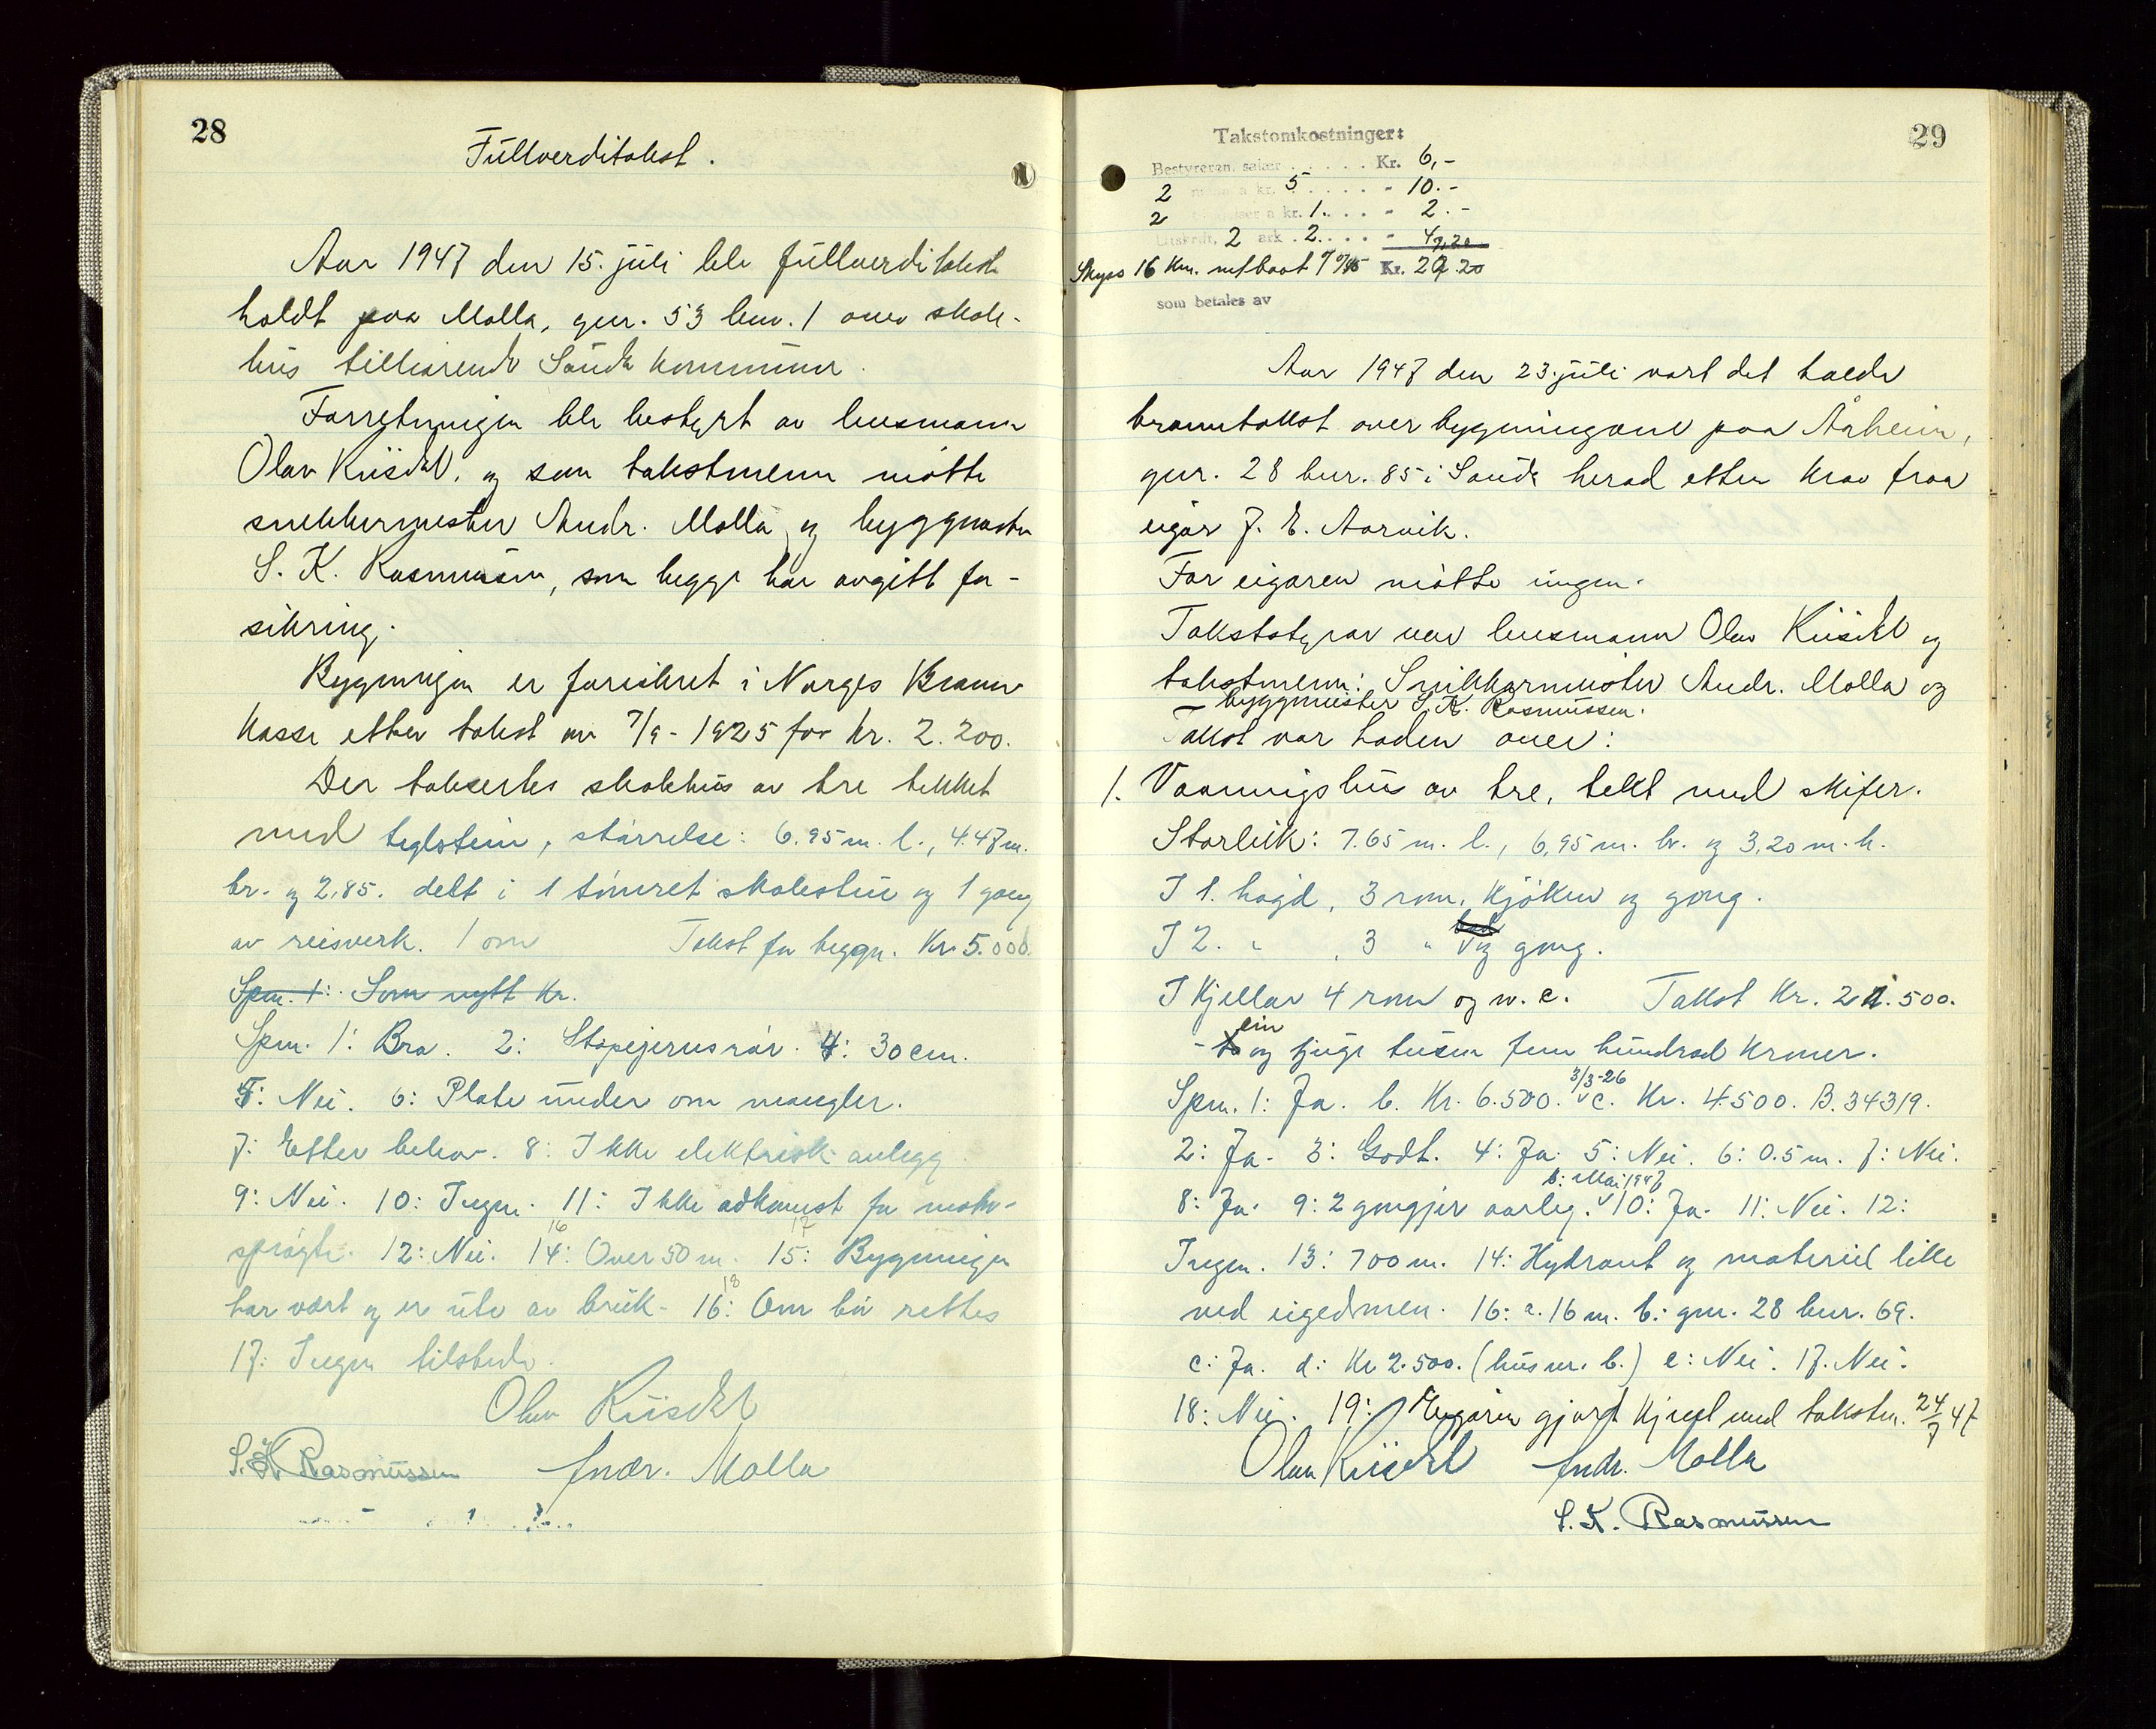 28
Fullverditakst.
Aar 1947 den 15. juli ble fullverditakst
holdt paa Molla, gnr. 53 bnr. 1 over skole-
hus tilhørende Sande kommune.
Forretningen ble bestyrt av lensmann
Olav Riisdal, og som takstmenn møtte
snekkermester Andr. Molla og byggmester
S. K. Rasmussen, som begge har avgitt for-
sikring.
Bygningen er forsikret i Norges Brann-
kasse etter takst av 7/9-1925 for kr. 2.200.
Der taksertes skolehus av tre tekket
med teglstein, størrelse: 6.95 m. l., 4.47 m.
br. og 2,85. delt i 1 tømret skolestue og 1 gang
av reisverk. 1 ovn Takst for byggn. Kr 5.000.
Spm. 1: Som nytt kr.
Spm. 1: Bra. 2: Støpejernsrør. 4: 30 cm.
5: Nei. 6: Plate under ovn mangler.
7: Etter behov. 8: Ikke elektrisk anlegg
9: Nei. 10: Ingen. 11: Ikke adkomst for motor-
sprøyte. 12: Nei. 14: 16 Over 50 m. 15: 17 Bygningen
har vært og er ute av bruk. 16: 18 Ovn bør rettes
17: Ingen tilstede.
Olav Riisdal
S. K. Rasmussen Andr. Molla
29
Takstomkostninger:
Bestyreren, salær . . . . . Kr. 6,-
2 menn a kr. 5 . . . . - 10.-
2 a kr. 1. . . . - 2.-
Utskrift, 2 ark . 2. . . . -
Skyss 16 km. m/baat Kr. 20
som betales av
Aar 1947 den 23. juli vart det halde
branntakst over bygningane paa Årheim,
gnr. 28 bnr. 85 i Sande herad etter krav fraa
eigar J. E. Aarvik.
For eigaren møtte ingen.
Takststyrar var lensmann Olav Riisdal og
takstmenn: Snikkarmeister Andr. Molla og
byggmeister S. K. Rasmussen.
Takst var haden over:
1. Vaaningshus av tre, tekt med skifer.
Storleik: 7.65 m. l., 6,95 m. br. og 3,20 m. h.
I 1. høgd, 3 rom, kjøken og gang.
I 2. " , 3 " bad og gang.
I kjellar 4 rom og w.c. Takst Kr. 21.500.
- ein og tjuge tusen fem hundrad kroner.
Spm. 1: Ja. b. Kr. 6.500. 3/3-26 c. Kr. 4.500. B. 34319.
2: Ja. 3: Godt. 4: Ja. 5: Nei. 6: 0.5 m. 7: Nei.
8: Ja. 9: 2 gongjer aarleg. b: Mai 1947 10: Ja. 11: Nei. 12:
Ingen. 13: 700 m. 14: Hydrant og materiel lille
ved eigedmen. 16: a. 16 m. b: gnr. 28 bnr. 69.
c: Ja. d: Kr 2.500. (hus nr. b.) e: Nei. 17. Nei.
18: Nei. 19: Eigaren gjort kjend med taksten. 24/7 47
Olav Riisdal Andr. Molla
S. K. Rasmussen